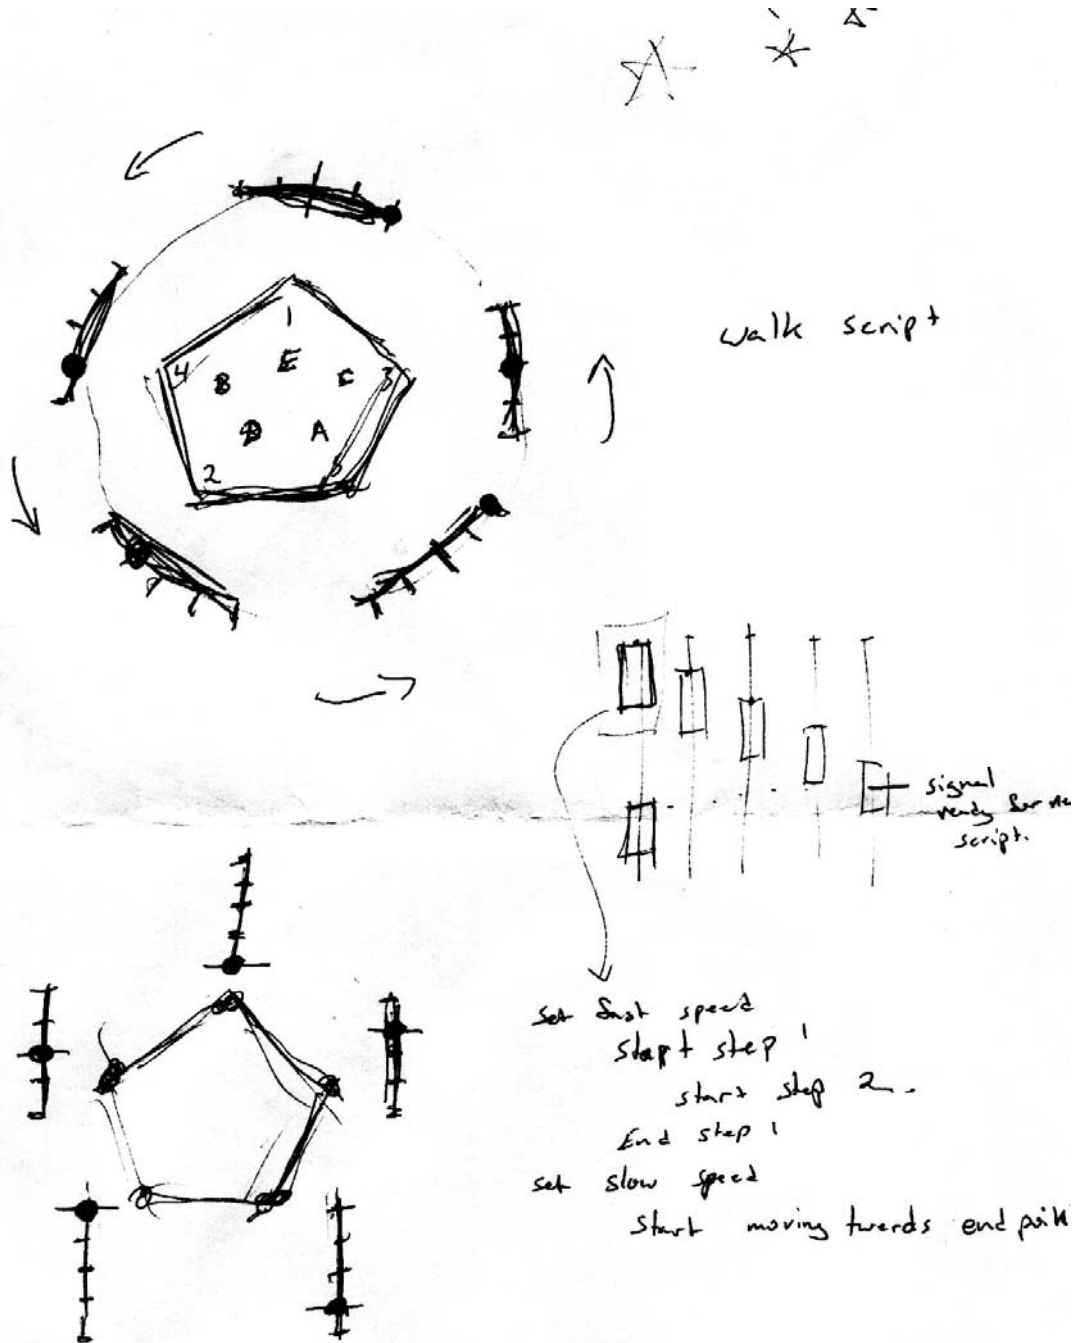 1
E
4
B
C
3
D
A
2
5
walk script
signal
ready for new
script.
set fast speed
Stapt step 1
start step 2.
End step 1
set slow speed
Start moving twerds end poin